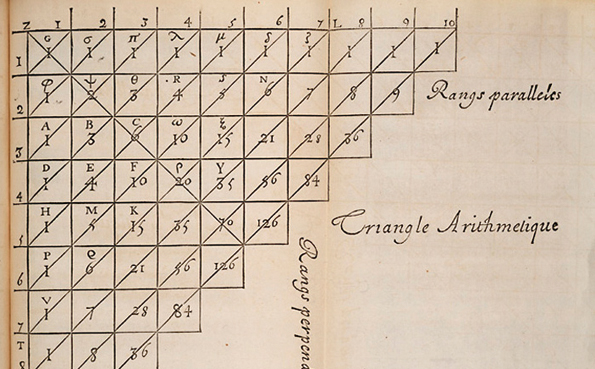 Z 1 2 3 4 5 6 7 L 8 9 10
G σ π λ μ δ ζ
1 1 1 1 1 1 1 1 1 1 1
φ ψ θ R S N
2 1 2 3 4 5 6 7 8 9 Rangs paralleles
A B C ω ξ
3 1 3 6 10 15 21 28 36
D E F ρ Y
4 1 4 10 20 35 56 84
H M K
5 1 5 15 35 70 126 Triangle Arithmetique
P Q
6 1 6 21 56 126
V
7 1 7 28 84
T
8 1 8 36
Rangs perpend